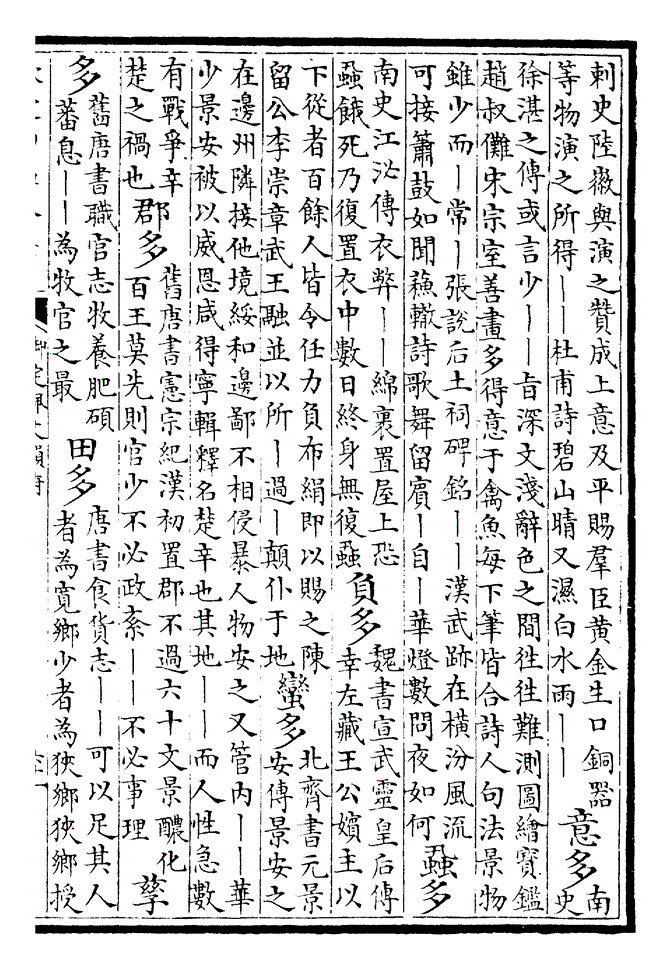 刺史陸徽與演之贊成上意及平賜羣臣黄金生口銅器
等物演之所得——杜甫詩碧山晴又濕白水雨——
意多
南
史
徐湛之傳或言少——旨深文淺辭色之間往往難測圖繪寳鑑
趙叔儺宋宗室善畫多得意于禽魚每下筆皆合詩人句法景物
雖少而—常—張說后土祠碑銘——漢武跡在横汾風流
可接簫鼓如聞蘓轍詩歌舞留賓—自—華燈數問夜如何
蝨多
南史江泌傳衣弊——綿裹置屋上恐
蝨餓死乃復置衣中數日終身無復蝨
負多
魏書宣武靈皇后傳
幸左藏王公嬪主以
下從者百餘人皆令任力負布絹即以賜之陳
留公李崇章武王融並以所—過—顛仆于地
蠻多
北齊書元景
安傳景安之
在邊州隣接他境綏和邊鄙不相侵暴人物安之又管内——華
少景安被以威恩咸得寧輯釋名楚辛也其地——而人性急數
有戰爭辛
楚之禍也
郡多
舊唐書憲宗紀漢初置郡不過六十文景醲化
百王莫先則官少不必政紊——不必事理
孳
多
舊唐書職官志牧養肥碩
蕃息——為牧官之最
田多
唐書食貨志——可以足其人
者為寛鄉少者為狹鄉狹鄉授